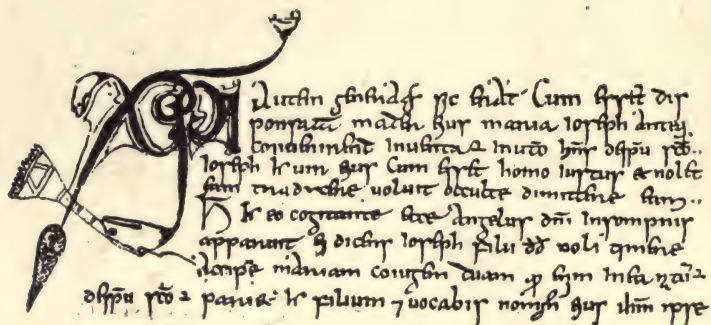 XPI autem g̅e̅ratio sic erat Cum esset dis
ponsata mater eius maria ioseph anteq̅
conuenirent inuenta ÷ inut̅o h̅n̅s despu̅ sc̅o..
ioseph uir eius Cum esset homo iustus et nollet
eam traducere uoluit occulte dimittere eam..
H ec eo cogitante ecce Angelus dn̅i insompnis
apparuit ei dicens ioseph fili dd̅ noli timere
accipe̅ mariam coniugem tuam
despu̅ sc̅o ÷ pariet filium ⁊ uocabis nomen eius ih̅m ipse